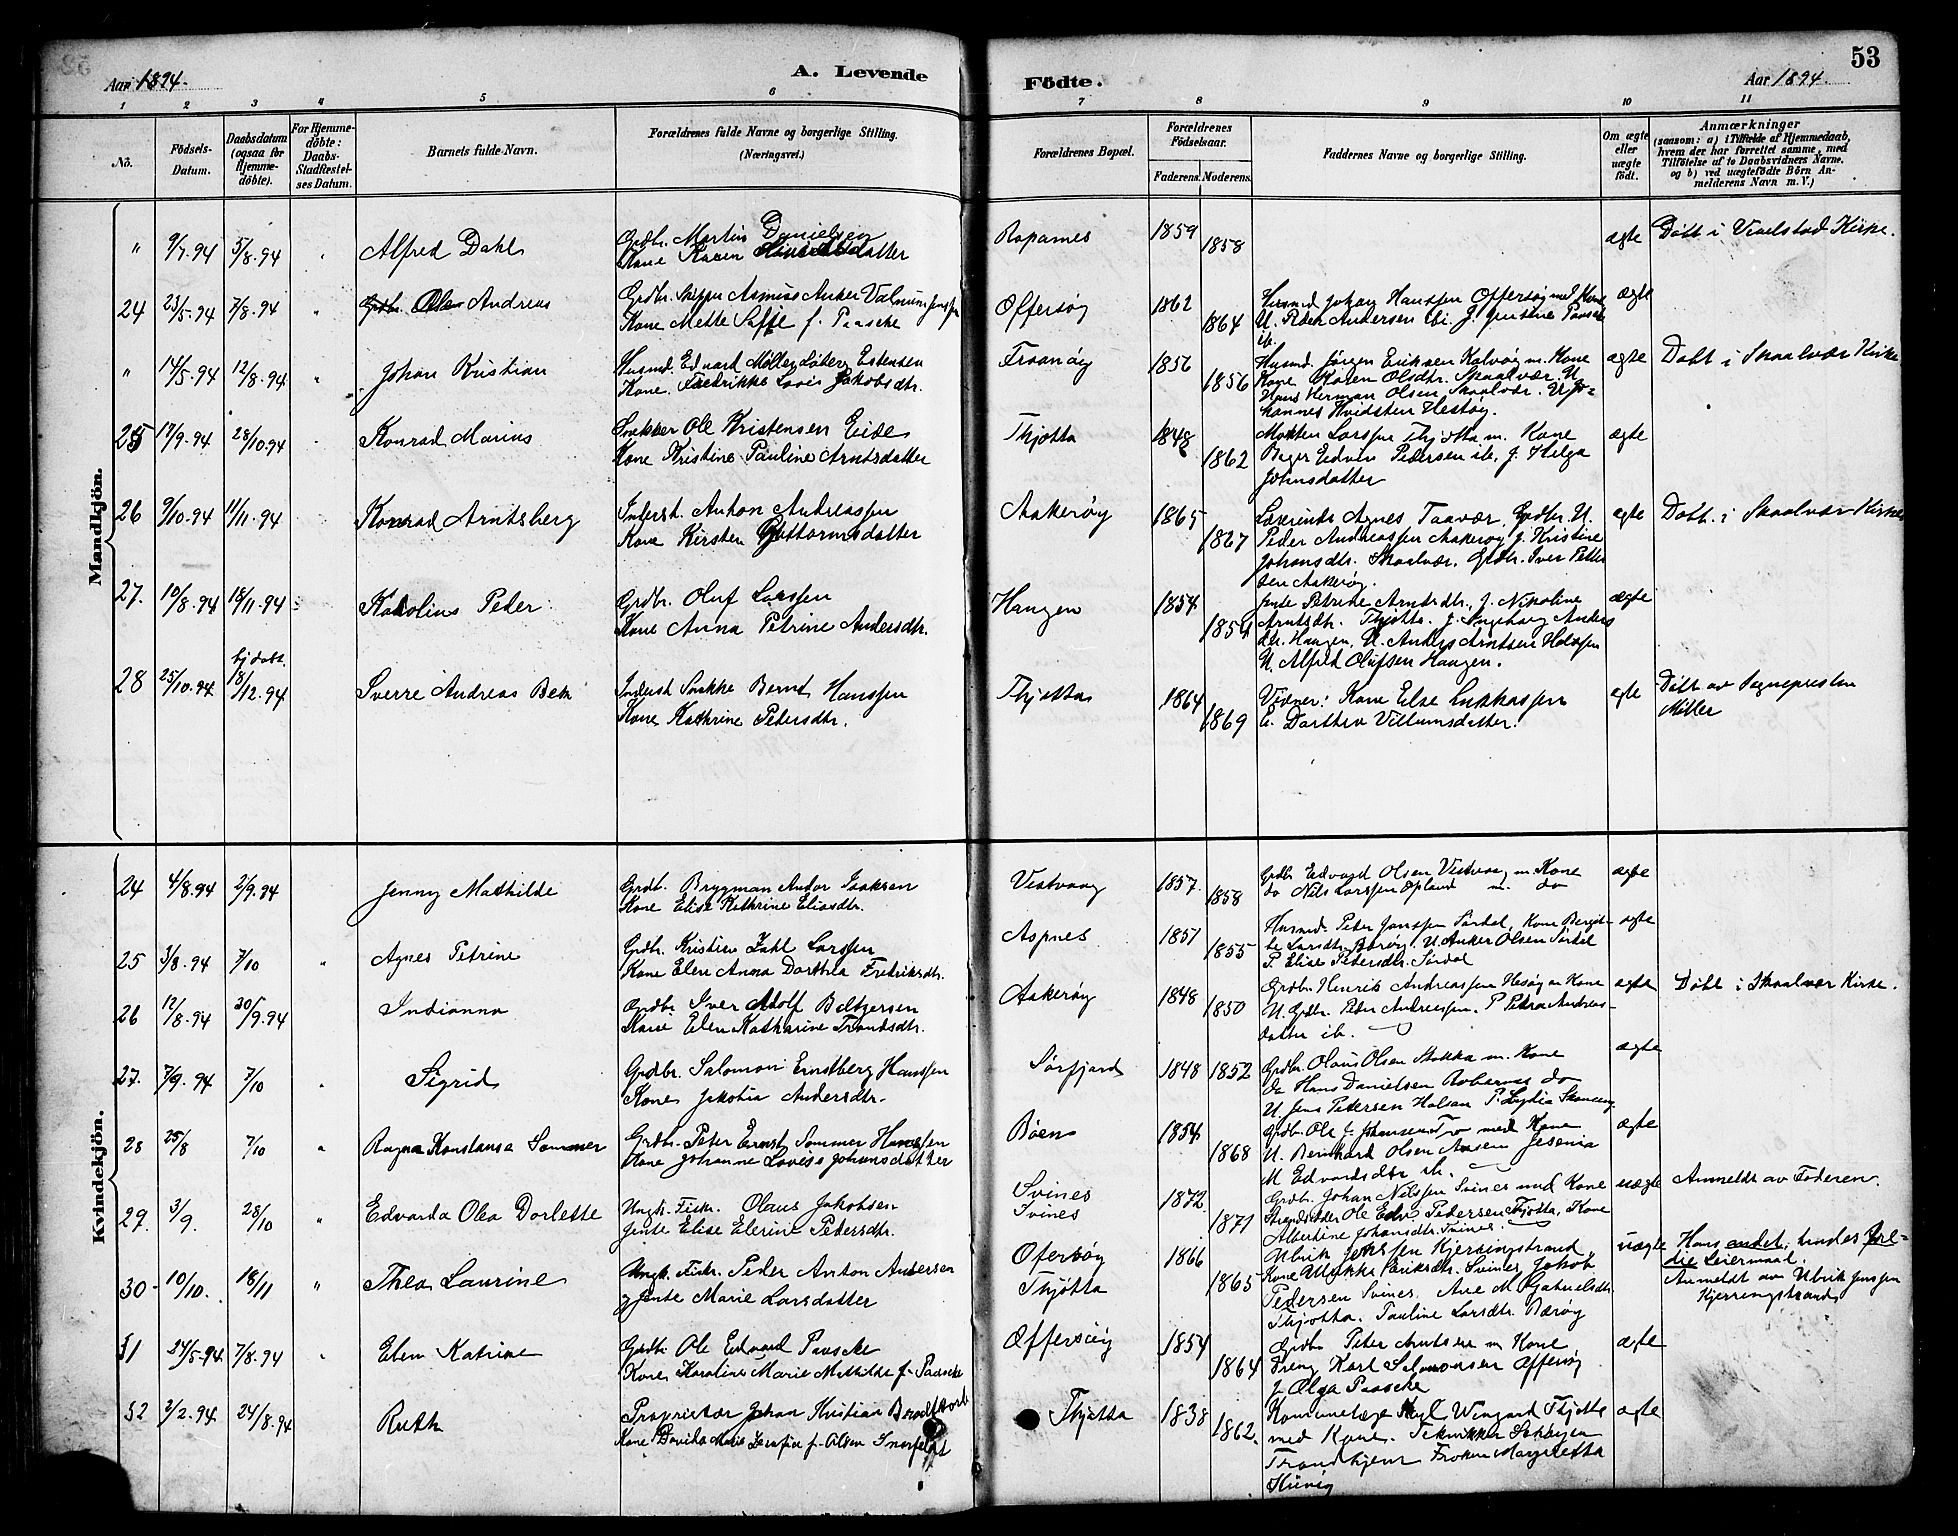 53
Aar 1894.
A. Levende
Födte.
Aar 1894.
1 2 3 4 5 6 7 8 9 10 11
No.
Födsels-Datum.
Daabsdatum (ogsaa for Hjemmedöbte).
For Hjemmedöbte: Daabs-Stadfæstelses Datum.
Barnets fulde Navn.
Forældrenes fulde Navne og borgerlige Stilling.
(Næringsvei.)
Forældrenes Bopæl.
Forældrenes Födselsaar.
Faderens. Moderens.
Faddernes Navne og borgerlige Stilling.
Om ægte eller uægte födt.
Anmærkninger
(saasom: a) i Tilfælde af Hjemmedaab,
hvem der har forrettet samme, med
Tilföielse af to Daabsvidners Navne,
og b) ved uægtefödte Börn Anmelderens Navn m. V.)
Mandkjön.
" 9/7.94 5/8.94 Alfred Dahl
Grdbr. Martin Danielsen
Kone Karen
1859 1858
ægte
Døbt i Kirke.
24 23/5.94 7/8.94 Andreas
Grdbr. Skipper Asmus Anker
Kone Mette f. Paasche
Offersøy 1862 1864
Husmd Johan Hanssen Offersøy med Kone
U. Peder Andersen ib. J. Justine Paasche
ib.
ægte
" 14/5.94 12/8.94 Johan Kristian
Husmd. Edvard Møller Estensen
Kone. Fredrikke Lovise Jakobsdtr.
1856 1856
Husmd. Jørgen Eriksen Kalvøy m. Kone
Kone Karen Olsdtr. Skaalvær. U.
Hans Herman Olsen Skaalvær. U. Johannes Hvidsten Hestøy.
ægte
Døbt i Skaalvær Kirke
25 17/9.94 28/10.94 Konrad Marius
Ole Kristensen Eide
Kone Kristine Pauline Arntsdatter
Thjøtta 1848 1862
Morten Larssen Thjøtta m. Kone
Bager Edvin Pedersen ib, J. Helga
Johnsdatter
ægte
26 9/10.94 11/11.94 Konrad Arntsberg
Inderst. Anton Andreassen
Kone Kirsten Guttormsdatter
Aakerøy 1865 1867
Lærerinde Agnes Taavær, Grdbr. U.
Peder Andreassen Aakerøy J. Kristine
Johansdtr. Skaalvær. Grdbr. Iver Pettersen Aakerøy.
ægte
Døbt. i Skaalvær Kirke
27. 10/8.94 18/11.94 Karolius Peder
Grdbr. Oluf Larssen
Kone Anna Petrine Andersdtr.
Haugen 1854 1854
Jente Petrine Arntsdtr., J. Nikoline
Arntsdtr. Thjøtta. J. Ingeborg Andersdtr. Haugen, U. Anders Arntsen
U. Alfred Olufsen Haugen.
ægte
28 25/10.94 hj.døbt. 18/12.94 Sverre Andreas Bek
Inderst Bernt Hanssen
Kone Kathrine Pedersdtr.
Thjøtta 1864 1869
Vidner: Kone Else Lukkassen
E. Dorthea Villumsdatter.
ægte
Døbt av Sognepresten
Møller
Kvindekjön.
24 4/8.94 2/9.94 Jenny Mathilde
Grdb. Brygman Andor Isaksen
Kone Elise Kathrine Eliasdtr.
Vestvaag 1857. 1858
Grdb Edvard Olsen Vestvaag m Kone
do Nils Larssen Opland m. do
ægte
25 3/8.94 7/10 Agnes Petrine
Grdbr. Kristian Zahl Larssen
Kone Elen Anna Dorthea Fredriksdtr.
Aspnes 1851 1855
Husmd. Peter Janssen Sørdal, Kone
Larsdtr. Barøy. U. Anker Olsen Sørdal
P. Elise Pedersdtr. Sørdal
ægte
26 12/8.94 30/9.94 Indianna
Grdbr. Iver Adolf Baltzersen
Kone Elen Katharine
Aakerøy 1848 1850
Grdbr. Henrik Andreassen Hesøy m Kone
U. Grdbr. Peder Andreassen. P Petra Andreasdatter ib.
ægte
Døbt i Skaalvær Kirke.
27. 7/9.94 7/10 Sigrid
Grdbr. Salomon Ernstberg Hanssen
Kone Jakobia Andersdtr.
Sørfjord 1848 1852
Grdbr. Olaus Olsen Stokka m. Kone
do Hans Danielsen do
U. Jens Pedersen P. Lydia
ægte
28 25/8 7/10 Ragna Konstanse Sommer
Grdbr. Peter Ernst Sommer Hanssen
Kone Johanne Lovise Johansdatter
Bøen 1854 1868
Grdbr. Ole J. Johansen med Kone
U. Bernhard Olsen Jesenia
M. Edvardsdtr ib.
ægte
29. 3/9. 28/10 Edvarda Olea Dorlette
Ungk. Fisk. Olaus Jakobsen
Jente Elise Elerine Pedersdtr.
Svines
Svines
1872. 1871
Grdb. Johan Nilssen Svines med Kone
Strandsidder Ole Edv. Pedersen Tjøtta, Kone
Albertine Johansdtr. Svines.
uægte
Anmeldt av Føderen.
30- 10/10. 18/11 Thea Laurine
Ungk. Fiskr. Peder Anton Andersen
Jente Marie Larsdatter
Offersøy
Thjøtta
1866 1865
Ulrik Jenssen Kjerringstrand
Kone Eriksdtr. Svines, Jakob
Pedersen Svines, Ane M. Gabrielsdtr
Thjøtta. Pauline Larsdtr. Barøy
uægte
Hans andet, hendes tredie Leiermaal.
Anmeldt av Ulrik Jenssen
Kjerringstrand
31 24/5.94 7/8.94 Elen Katrine
Grdbr. Ole Edvard Paasche
Kone Karoline Marie Mathilde f. Paasche
Offersøy 1854 1864
Grdbr. Peter Arntsen m Kone
Dreng Karl Salomonsen Offersøy
J. Olga Paasche
ægte
32 2/2.94 24/8.94 Ruth
Proprietær Johan Kristian Brodtkorb
Kone Davida Marie
Thjøtta 1838 1862.
Komunelæge Wingard Thjøtta
med Kone. Tekniker
Trondhjem Frøken Margretha
ægte